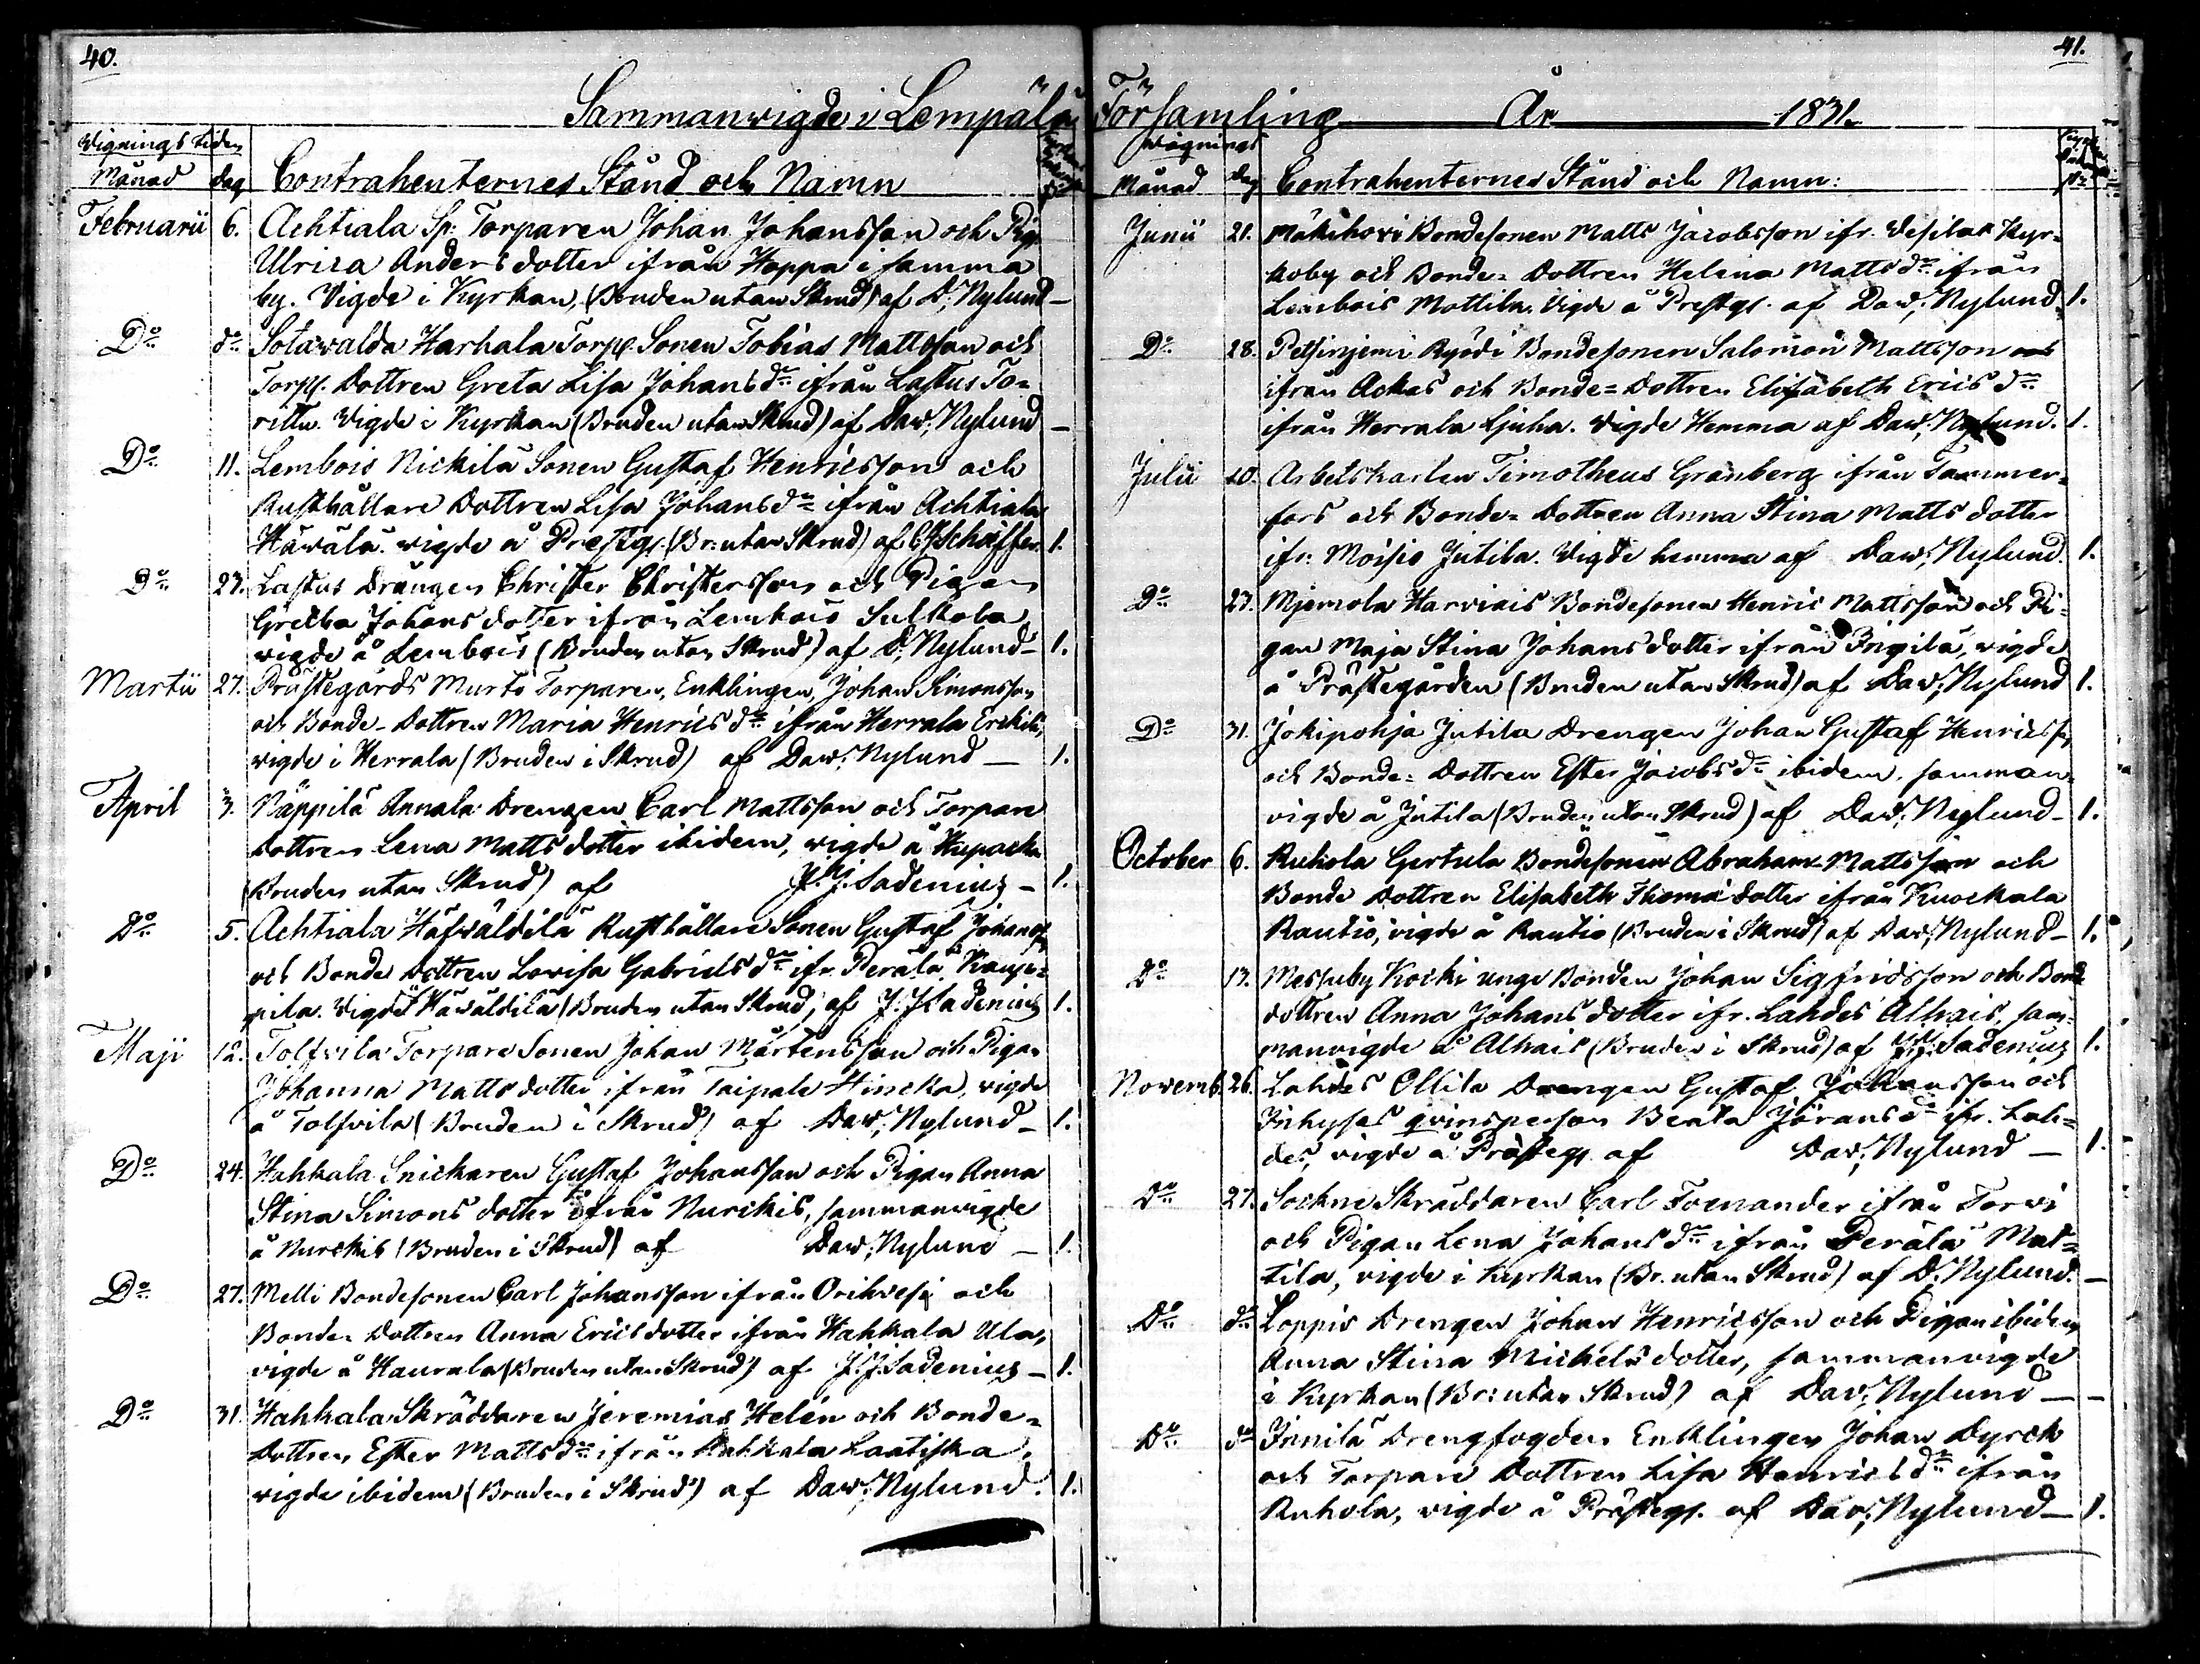 40.
Sammanwigde i Lempälä
Wignings tiden
Månad dag Contrahenternes Stånd och Namn
Februarii 6. Achtiala Sp: Torparen Johan Johansson och Pig.
Ulrica Andersdotter ifrån Hoppa i samma
by. Vigde i Kyrkan, (Bruden utan Skrud) af D: Nylund —
Do do Sotavalda Harhala Torp. Sonen Tobias Mattsson och
Torp. Dottren Greta Lisa Johansdr ifrån Lastus To-
rittu. Vigde i Kyrkan (Bruden utan Skrud) af Dav: Nylund —
Do 11. Lembois Nickilä Sonen Gustaf Henricsson och
Rusthållare Dottren Lisa Johansdr ifrån Achtiala
Häwälä. vigde å Prestgs. (Br: utan Skrud) af Schäffer 1.
Do 27. Lastus Drängen Christer Christersson och Pigan
Johansdotter ifrån Lembois Sulkola
vigde å Lembois (Bruden utan Skrud) af D: Nylund — 1.
Martii 27. Prästegårds Murto Torparen, Enklingen, Johan Simonsson
och Bonde-Dottren Maria Henricsdr ifrån Herrala Erckilä,
vigde i Herrala (Bruden i Skrud) af Dav: Nylund — 1.
April 3. Näppilä Annala Drengen Carl Mattsson och Torpare
Dottren Lena Mattsdotter ibidem, vigde å
(Bruden utan Skrud) af J. J. Sadenius — 1.
Do 5. Achtiala Häfväldilä Rusthållare Sonen Gustaf Johansson
och Bonde Dottren Lovisa Gabrielsdr ifr. Perälä Kaup-
pila. Vigde å Häväldilä (Bruden utan Skrud) af J: J Sadenius 1.
Maji 12. Tolfvila Torpare Sonen Johan Mårtensson och Pigan
Johanna Mattsdotter ifrån Taipale Hincka, vigde
å Tolfvila (Bruden i Skrud) af Dav: Nylund — 1.
Do 24. Hahkala Snickaren Gustaf Johansson och Pigan Anna
Stina Simonsdotter ifrån Nurckis, sammanvigde
å Nurckis (Bruden i Skrud) af Dav: Nylund — 1.
Do 27. Melli Bondesonen Carl Johansson ifrån Orihvesi och
Bonde-Dottren Anna Ericsdotter ifrån Hahkala Ula,
vigde å Haurala (Bruden utan Skrud) af J. J. Sadenius — 1.
Do 31. Hahkala Skräddaren Jeremias Helén och Bonde-
Dottren Ester Mattsdr ifrån Hahkala Laatiska,
vigde ibidem (Bruden i Skrud) af Dav: Nylund. 1.
41.
Församling År 1831.
Wignings
Månad dag Contrahenternes Stånd och Namn:
Junii 21. Mäkihovi Bondesonen Matts Jacobsson ifr. Vesilax Kyr-
koby och Bonde-Dottren Helena Mattsdr ifrån
Lembois Mottila. Vigde å Prestgs. af Dav: Nylund 1.
Do 28. Bondesonen Salomon Mattsson
ifrån Ackas och Bonde-Dottren Elisabeth Ericsdr
ifrån Herrala Ljuha. Vigde Hemma af Dav: Nylund. 1.
Julii 10. Arbetskarlen Timotheus Granberg ifrån Tammer-
fors och Bonde-Dottren Anna Stina Mattsdotter
ifr: Moisio Jutila. Vigde hemma af Dav: Nylund. 1.
Do 27. Mjemola Harviais Bondesonen Henric Mattsson och Pi-
gan Maja Stina Johansdotter ifrån Ingilä, vigde
å Prästegården (Bruden utan Skrud) af Dav: Nylund 1.
Do 31. Jokipohja Jutila Drengen Johan Gustaf Henricss.
och Bonde-Dottren Ester Jacobsdr ibidem, samman-
vigde å Jutila (Bruden utan Skrud) af Dav: Nylund — 1.
October 6. Kuhola Gertula Bondesonen Abraham Mattsson och
Bonde Dottren Elisabeth Thomædotter ifrån Kuockala
Rautio, vigde å Rautio (Bruden i Skrud) af Dav: Nylund — 1.
Do 13. Messuby Kocki unge Bonden Johan Sigfridsson och Bonde
dottren Anna Johansdotter ifr. Lahdes Alhais, sam-
manvigde å Alhais (Bruden i Skrud) af J. J. Sadenius 1.
Novemb. 26. Lahdes Ollila Drengen Gustaf Johansson och
Inhyses qvinsperson Beata Göransdr ifr. Lah-
des, vigde å Prästegs. af Dav: Nylund — 1.
Do 27. Sockne Skräddaren Carl Fornander ifrån Torvi
och Pigan Lena Johansdr ifrån Perälä Mat-
tila, vigde i Kyrkan (Br. utan Skrud) af D. Nylund. —
Do do Loppis Drengen Johan Henricsson och Pigan ibidem
Anna Stina Michelsdotter, sammanvigde
i Kyrkan (Br: utan Skrud) af Dav: Nylund — —
Do do Innilä Drengfogden Enklingen Johan Dyrck
och Torpare Dottren Lisa Henricsdr ifrån
Kuhola, vigde å Prästegs. af Dav: Nylund — 1.